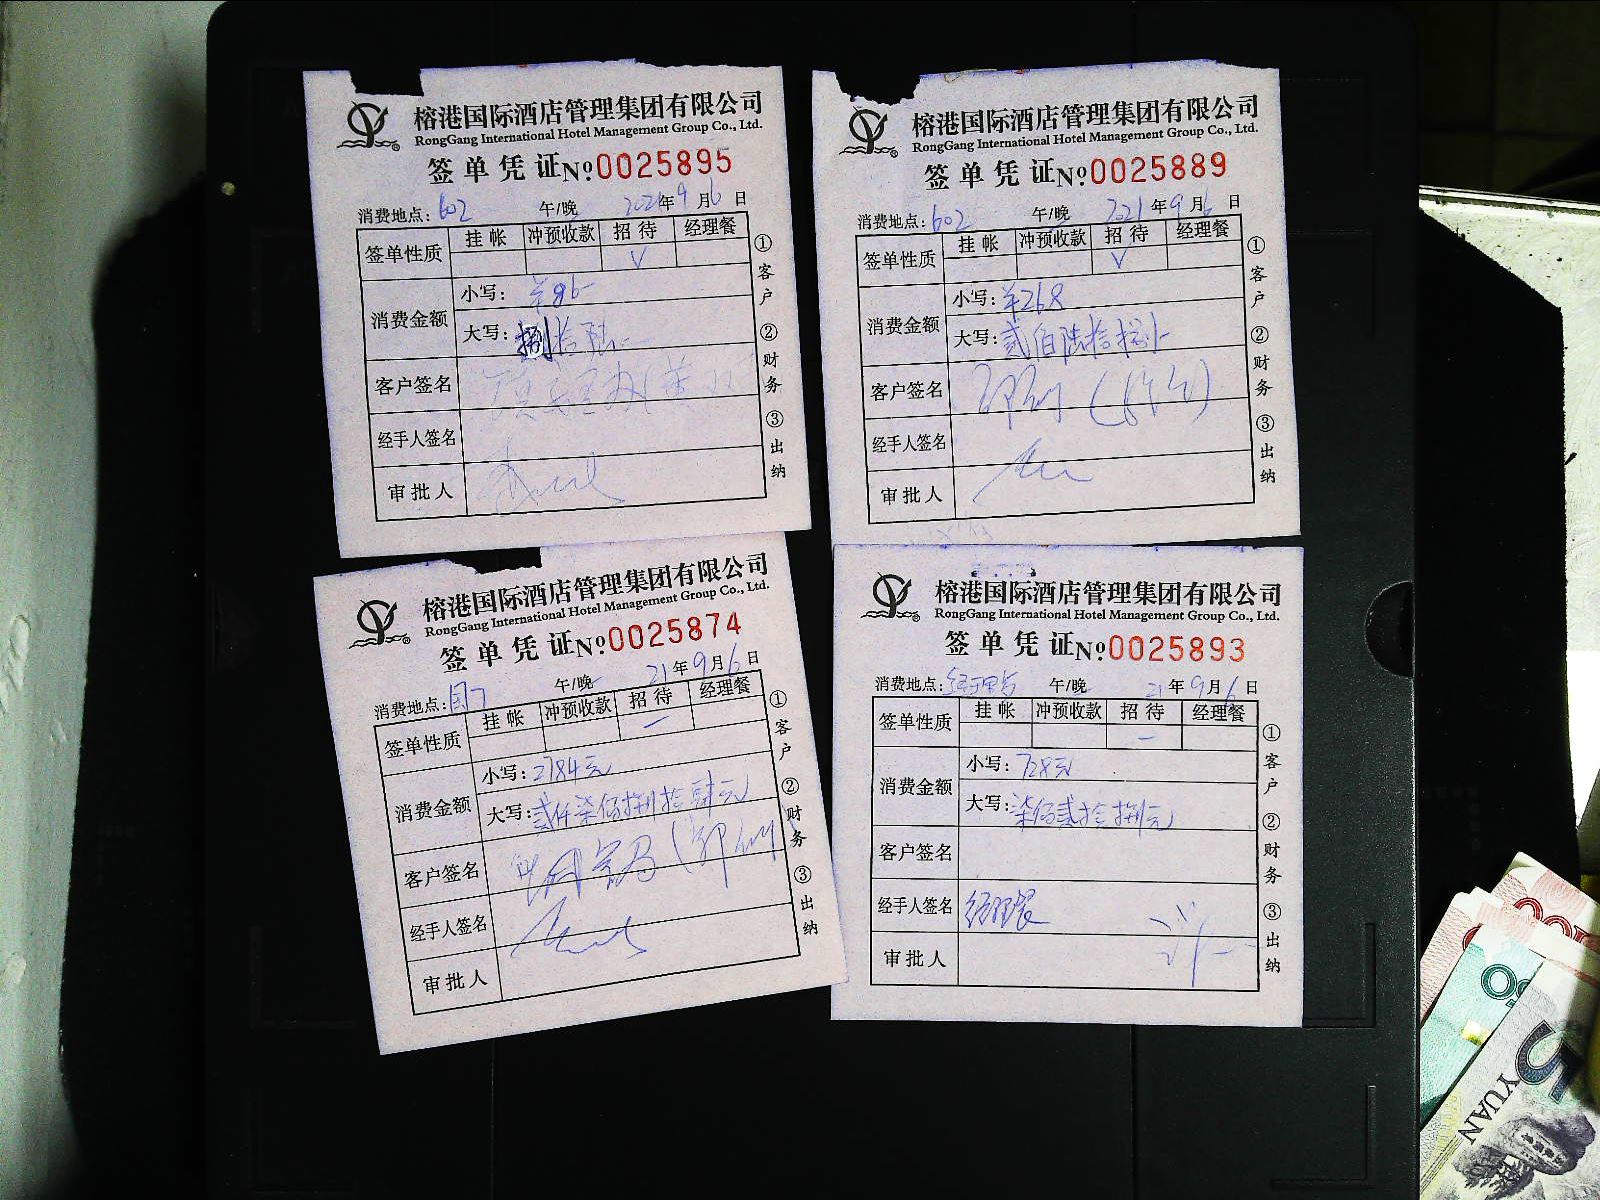 榕港国际酒店管理集团有限公司
RongGang International Hotel Management Group Co., Ltd.
签单凭证 No 0025895
消费地点: 602 午/晚 2021年9月6日
签单性质 挂帐 冲预收款 招待 经理餐
√
消费金额 小写: 羊86-
大写: 捌拾陆
客户签名
经手人签名
审批人
①客户 ②财务 ③出纳
榕港国际酒店管理集团有限公司
RongGang International Hotel Management Group Co., Ltd.
签单凭证 No 0025889
消费地点: 602 午/晚 2021年9月6日
签单性质 挂帐 冲预收款 招待 经理餐
√
消费金额 小写: 羊268
大写: 贰佰陆拾捌
客户签名
经手人签名
审批人
①客户 ②财务 ③出纳
榕港国际酒店管理集团有限公司
RongGang International Hotel Management Group Co., Ltd.
签单凭证 No 0025874
消费地点: 国门 午/晚 21年9月6日
签单性质 挂帐 冲预收款 招待 经理餐
消费金额 小写: 2784元
大写: 贰仟柒佰捌拾肆元
客户签名
经手人签名
审批人
①客户 ②财务 ③出纳
榕港国际酒店管理集团有限公司
RongGang International Hotel Management Group Co., Ltd.
签单凭证 No 0025893
消费地点: 午/晚 21年9月6日
签单性质 挂帐 冲预收款 招待 经理餐
消费金额 小写: 728元
大写: 柒佰贰拾捌元
客户签名
经手人签名 经理餐
审批人
①客户 ②财务 ③出纳
5
YUAN